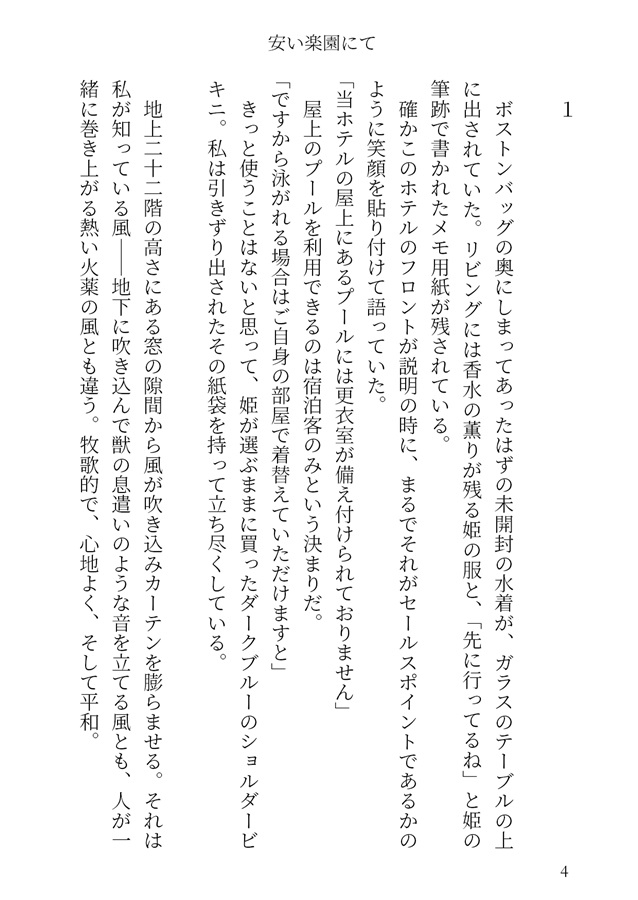 安い楽園にて
1
　ボストンバッグの奥にしまってあったはずの未開封の水着が、ガラスのテーブルの上
に出されていた。リビングには香水の薫りが残る姫の服と、「先に行ってるね」と姫の
筆跡で書かれたメモ用紙が残されている。
　確かこのホテルのフロントが説明の時に、まるでそれがセールスポイントであるかの
ように笑顔を貼り付けて語っていた。
「当ホテルの屋上にあるプールには更衣室が備え付けられておりません」
　屋上のプールを利用できるのは宿泊客のみという決まりだ。
「ですから泳がれる場合はご自身の部屋で着替えていただけますと」
　きっと使うことはないと思って、姫が選ぶままに買ったダークブルーのショルダービ
キニ。私は引きずり出されたその紙袋を持って立ち尽くしている。
　地上二十二階の高さにある窓の隙間から風が吹き込みカーテンを膨らませる。それは
私が知っている風――地下に吹き込んで獣の息遣いのような音を立てる風とも、人が一
緒に巻き上がる熱い火薬の風とも違う。牧歌的で、心地よく、そして平和。
4